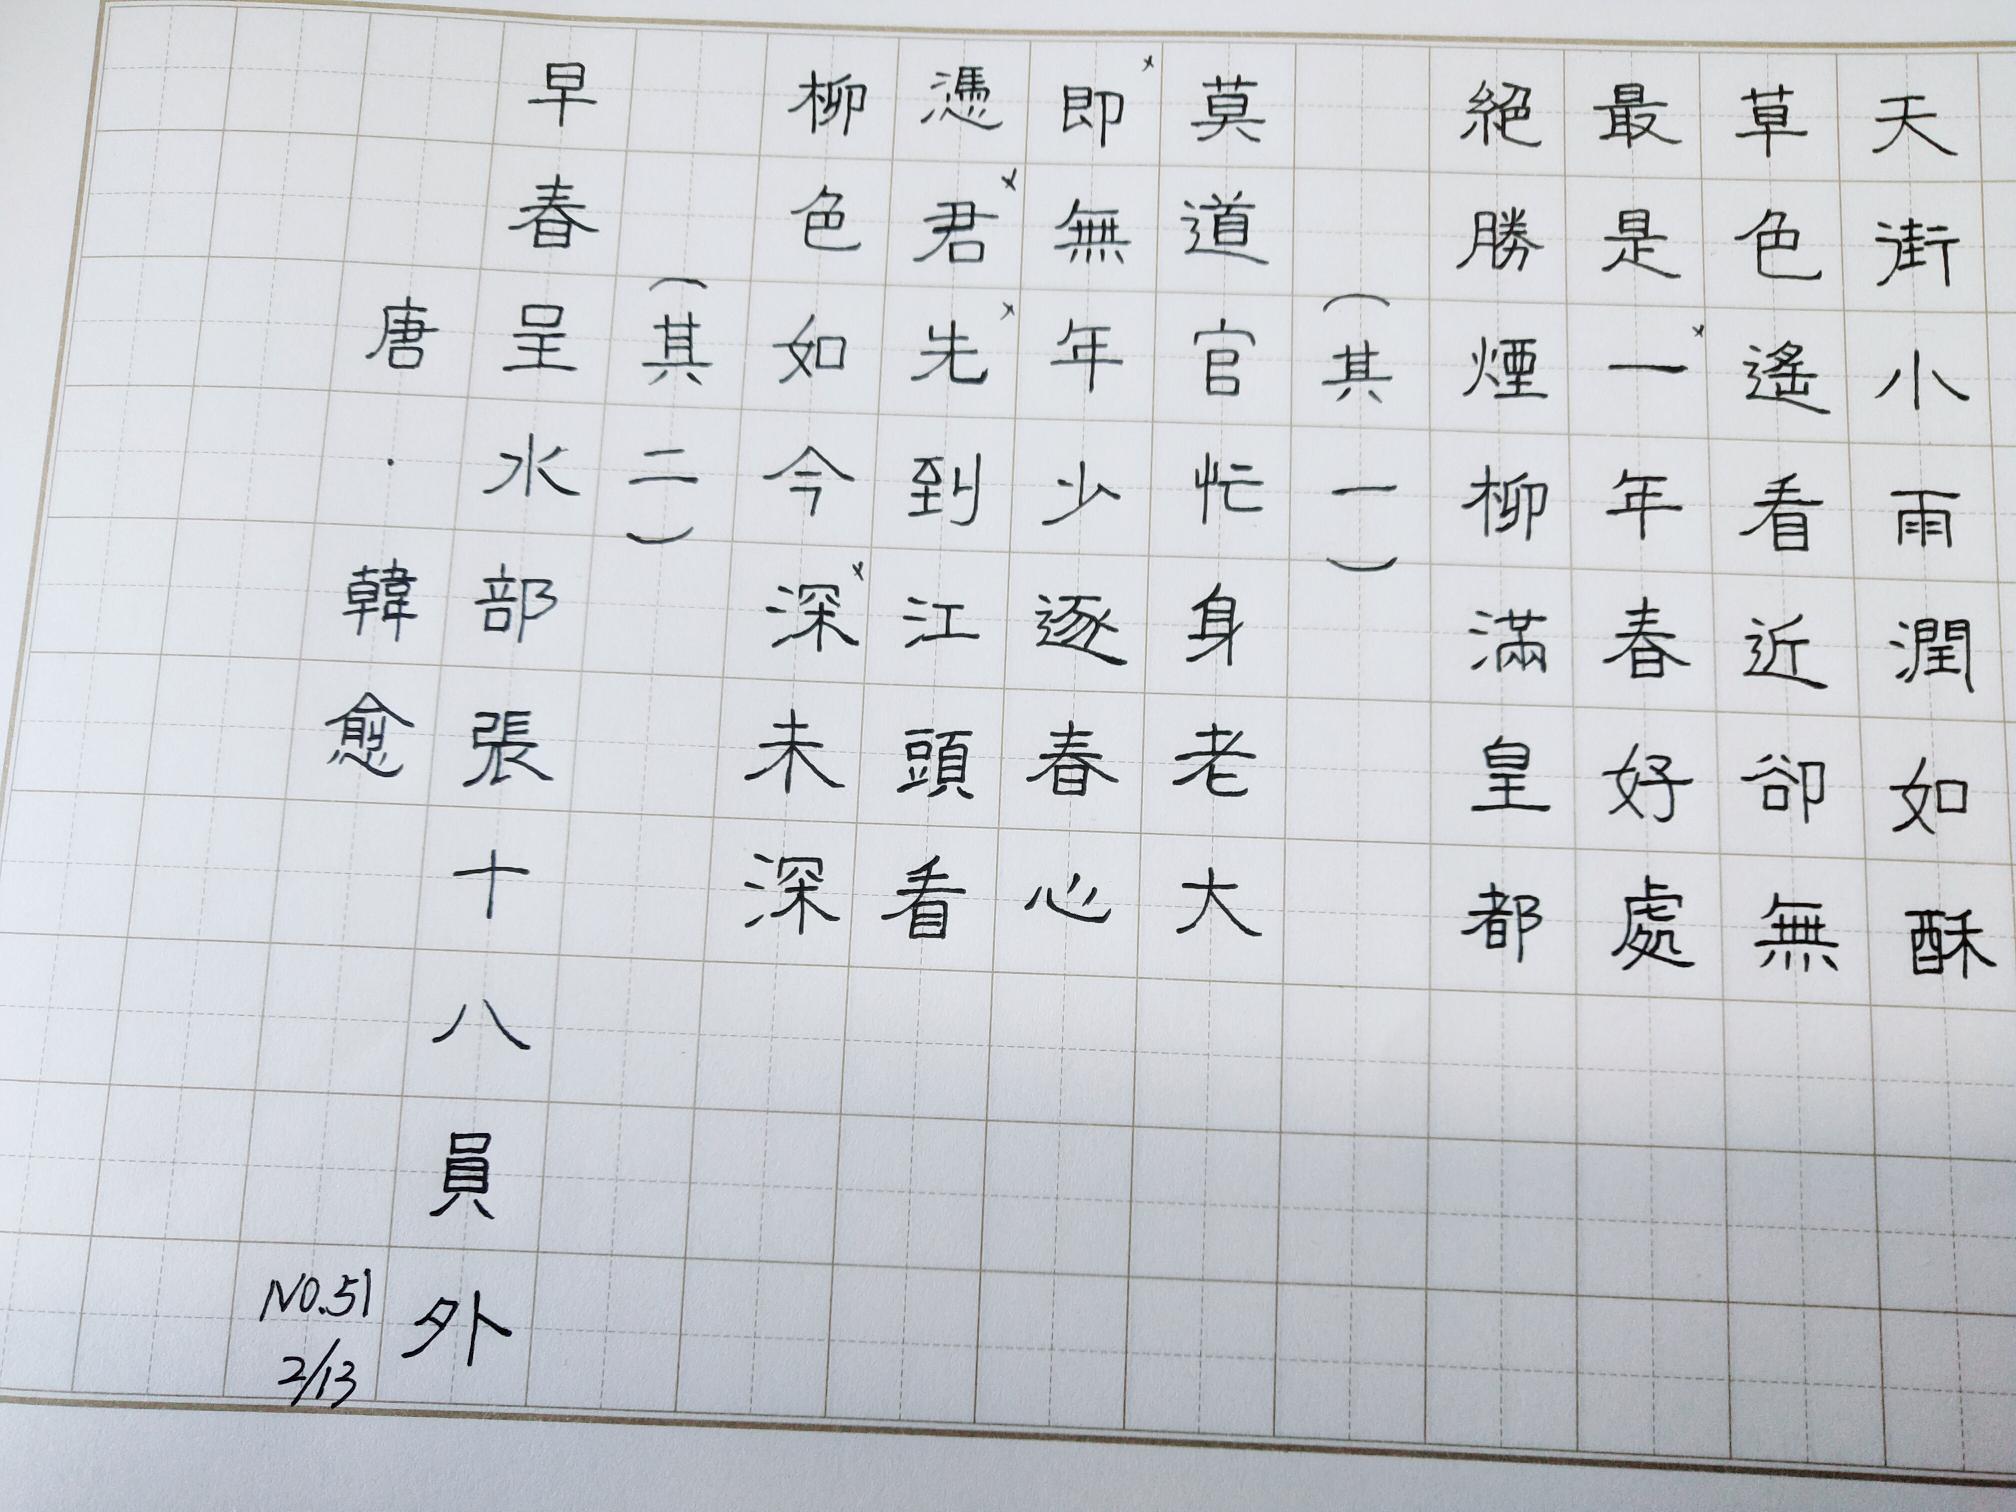 天街小雨潤如酥
草色遙看近卻無
最是一年春好處
絕勝煙柳滿皇都
(其一)
莫道官忙身老大
即無年少逐春心
憑君先到江頭看
柳色如今深未深
(其二)
早春呈水部張十八員外
唐．韓愈
NO.51
2/13